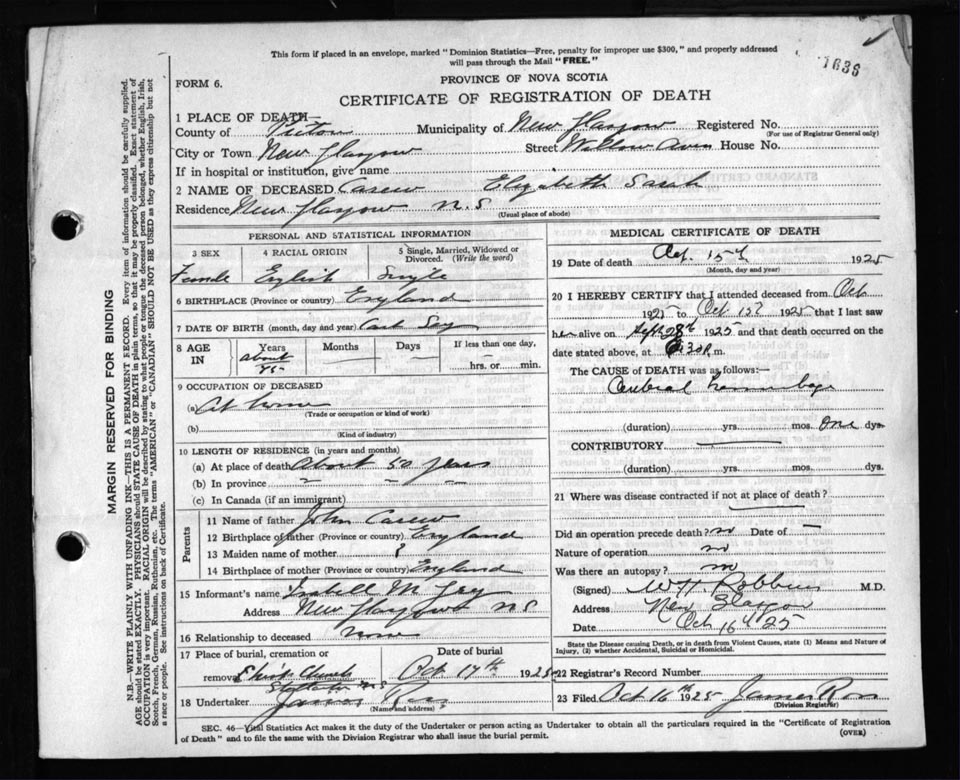 This form if placed in an envelope, marked "Dominion Statistics—Free, penalty for improper use $300," and properly addressed
will pass through the Mail "FREE."
1636
FORM 6.
PROVINCE OF NOVA SCOTIA
CERTIFICATE OF REGISTRATION OF DEATH
1 PLACE OF DEATH—
County of Pictou Municipality of New Glasgow Registered No.
(For use of Registrar General only)
City or Town New Glasgow Street Willow Aven House No.
If in hospital or institution, give name
2 NAME OF DECEASED Carew Elizabeth Sarah
Residence New Glasgow N.S
(Usual place of abode)
PERSONAL AND STATISTICAL INFORMATION
3 SEX 4 RACIAL ORIGIN 5 Single, Married, Widowed or Divorced. (Write the word)
Female English Single
6 BIRTHPLACE (Province or country) England
7 DATE OF BIRTH (month, day and year) Cant Say
8 AGE IN Years Months Days If less than one day,
about 85 hrs. or min.
9 OCCUPATION OF DECEASED
(a) At home
(Trade or occupation or kind of work)
(b)
(Kind of industry)
10 LENGTH OF RESIDENCE (in years and months)
(a) At place of death About 50 years
(b) In province " " "
(c) In Canada (if an immigrant)
Parents
11 Name of father John Carew
12 Birthplace of father (Province or country) England
13 Maiden name of mother ?
14 Birthplace of mother (Province or country) England
15 Informant's name
Address New Glasgow N.S
16 Relationship to deceased none
17 Place of burial, cremation or removal Date of burial
Stellarton N S Oct 17th 1925
18 Undertaker James
(Name and address)
MEDICAL CERTIFICATE OF DEATH
19 Date of death Oct. 15th 1925
(Month, day and year)
20 I HEREBY CERTIFY that I attended deceased from Oct
1925 to Oct 1925 that I last saw
her alive on 1925 and that death occurred on
date stated above, at 30 P. m.
The CAUSE of DEATH was as follows:—
Cerebral
(duration) yrs. mos. One dys.
CONTRIBUTORY
(duration) yrs. mos. dys.
21 Where was disease contracted if not at place of death?
Did an operation precede death? no Date of —
Nature of operation no
Was there an autopsy? no
(Signed) W H Robbins M.D.
Address New Glasgow
Date Oct 16 25
State the Disease causing Death, or in death from Violent Causes, state (1) Means and Nature of
Injury, (2) whether Accidental, Suicidal or Homicidal.
22 Registrar's Record Number
23 Filed Oct 16th 1925 James
(Division Registrar)
SEC. 46—Vital Statistics Act makes it the duty of the Undertaker or person acting as Undertaker to obtain all the particulars required in the "Certificate of Registration
of Death" and to file the same with the Division Registrar who shall issue the burial permit.
(OVER)
MARGIN RESERVED FOR BINDING
N.B.—WRITE PLAINLY WITH UNFADING INK—THIS IS A PERMANENT RECORD. Every item of information should be carefully supplied.
AGE should be stated EXACTLY. PHYSICIANS should STATE CAUSE OF DEATH in plain terms, so that it may be properly classified. Exact statement of
OCCUPATION is very important. RACIAL ORIGIN will be described by stating to what people or tongue the deceased person belonged, whether English, Irish,
Scotch, French, German, Russian, Ruthenian, etc. The terms "AMERICAN" or "CANADIAN" SHOULD NOT BE USED as they express citizenship but not
a race or people. See instructions on back of Certificate.